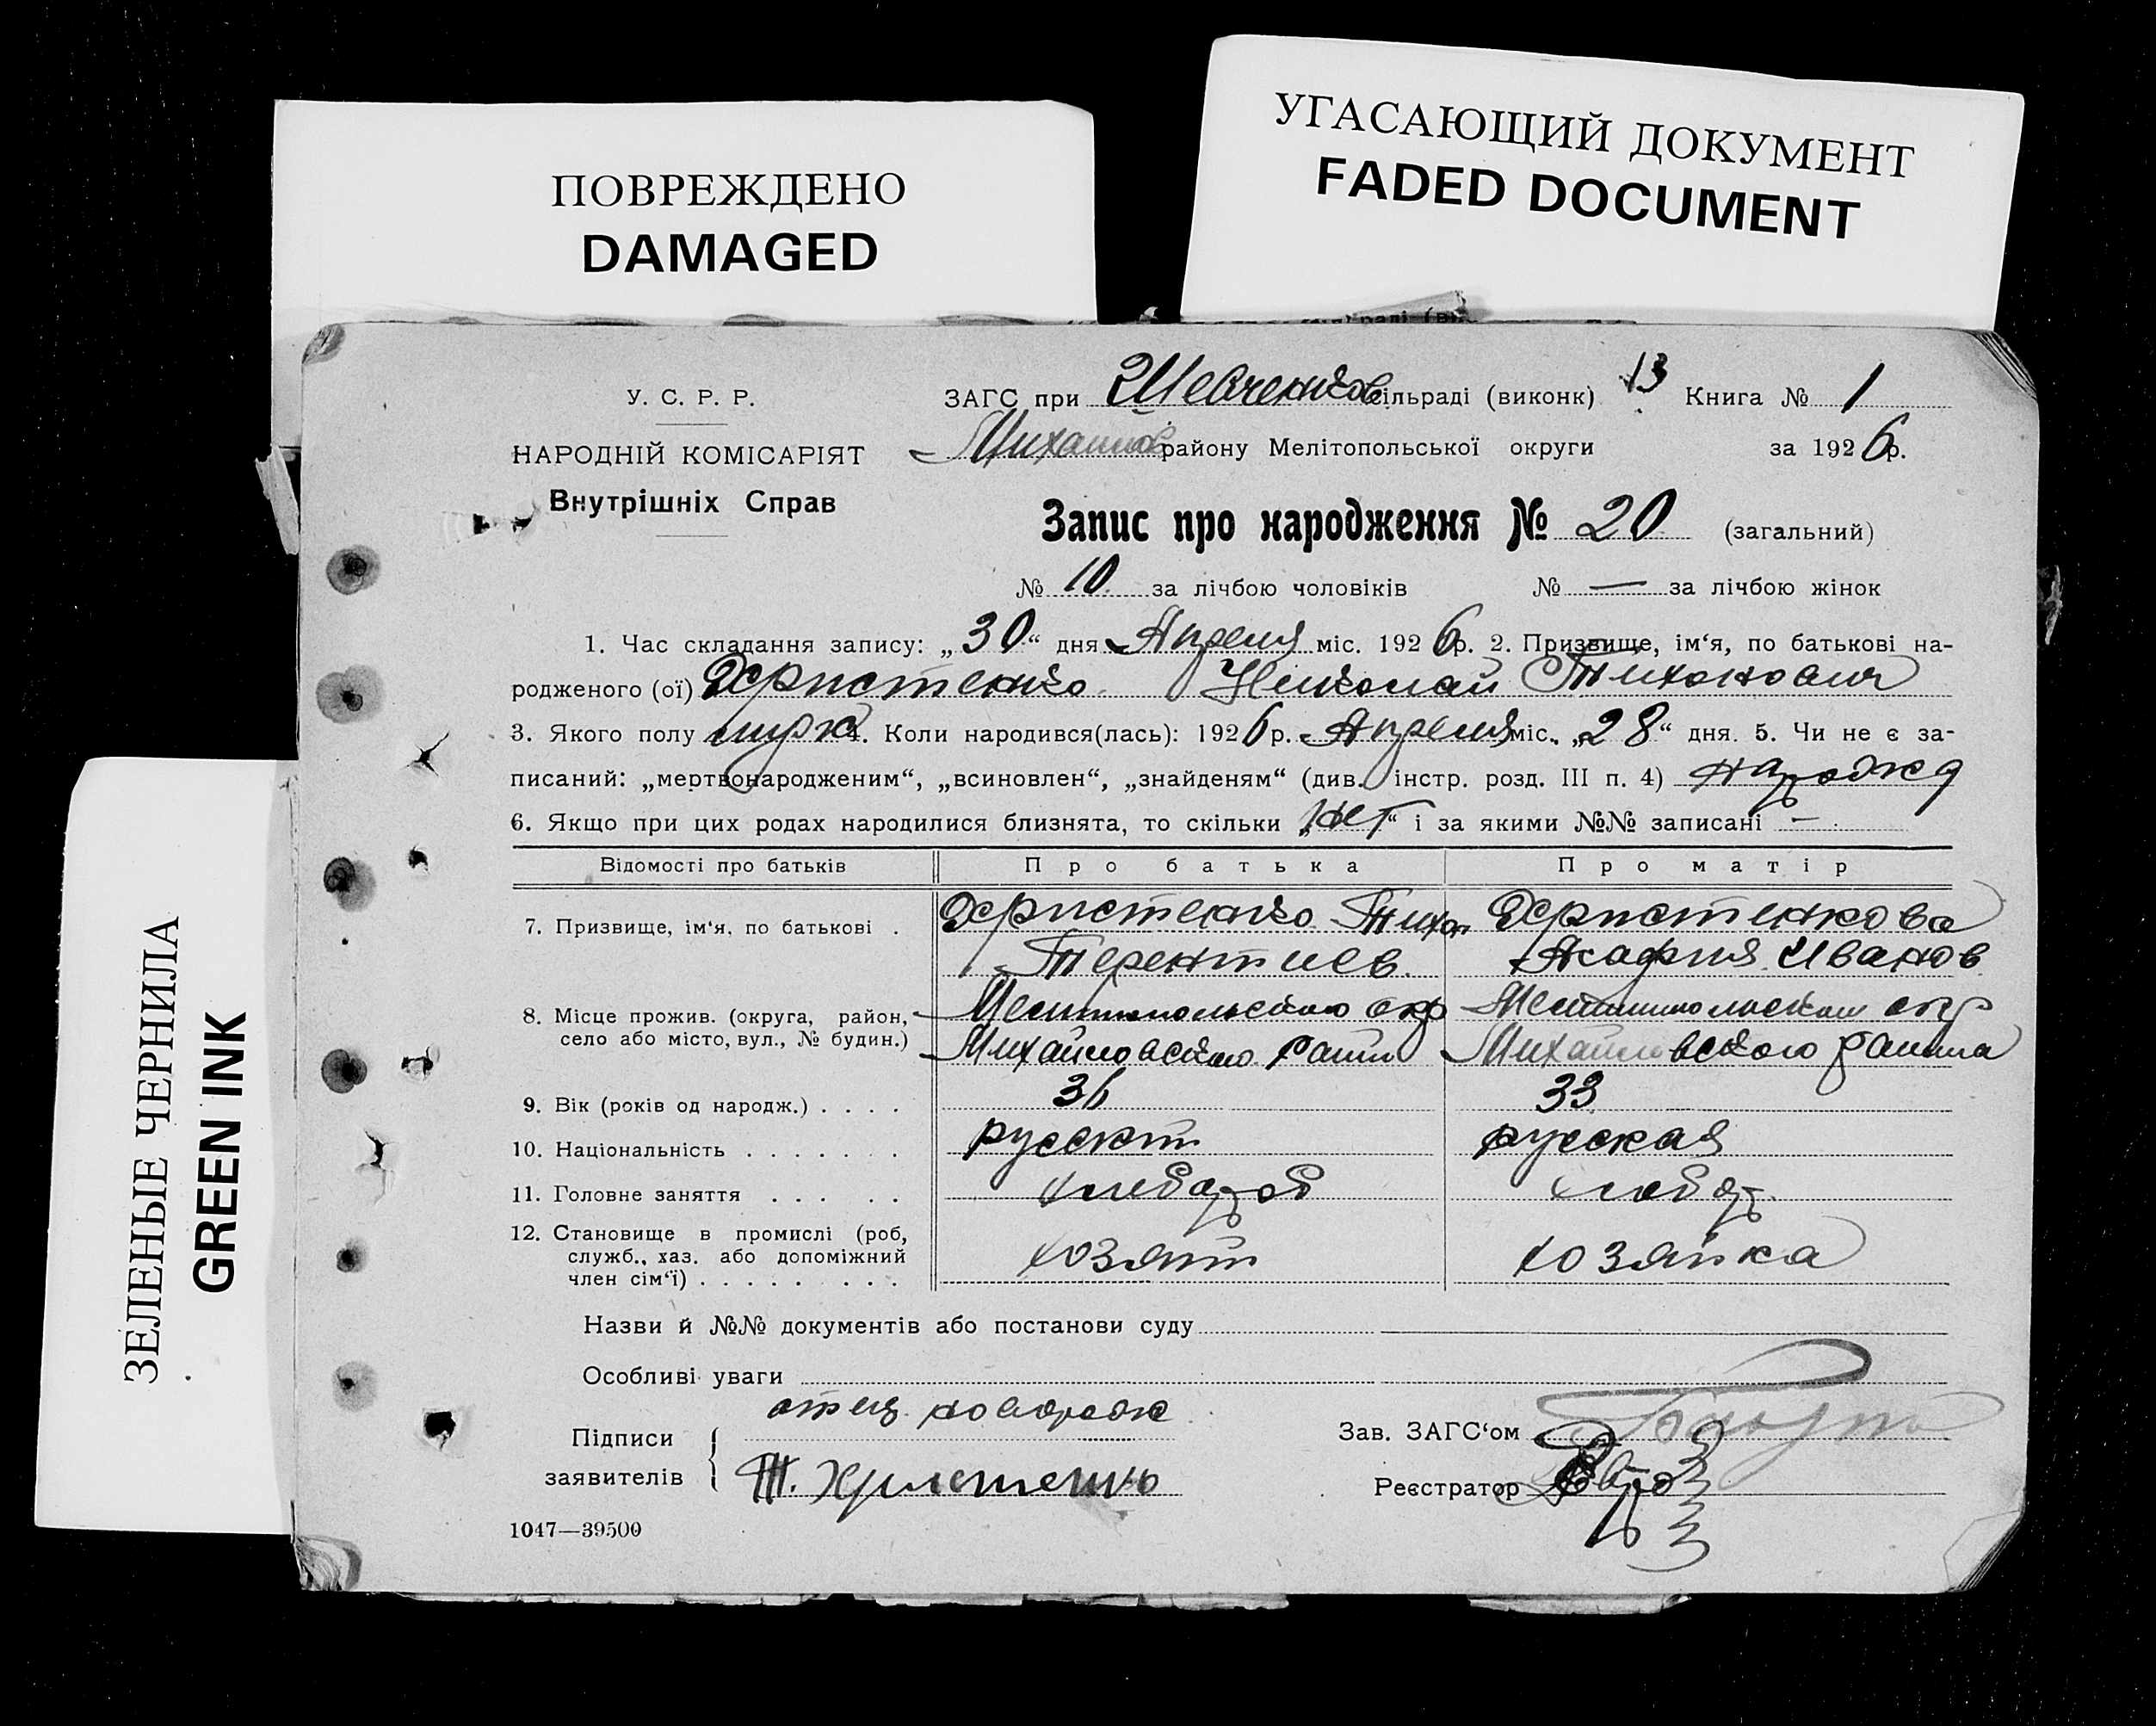 ПОВРЕЖДЕНО
DAMAGED
УГАСАЮЩИЙ ДОКУМЕНТ
FADED DOCUMENT
ЗЕЛЕНЫЕ ЧЕРНИЛА
GREEN INK
У. С. Р. Р.
НАРОДНІЙ КОМІСАРІЯТ
Внутрішніх Справ
ЗАГС при Шевченков сільраді (виконк) 13 Книга № 1
Михайлов району Мелітопольської округи за 1926 р.
Запис про народження № 20 (загальний)
№ 10 за лічбою чоловіків № — за лічбою жінок
1. Час складання запису: „30“ дня Апреля міс. 1926 р. 2. Призвище, ім‘я, по батькові на-
родженого (ої) Христенко Николай Тихонович
3. Якого полу 4. Коли народився(лась): 1926 р. Апреля міс. „28“ дня. 5. Чи не є за-
писаний: „мертвонародженим“, „всиновлен“, „знайденям“ (див. інстр. розд. III п. 4)
6. Якщо при цих родах народилися близнята, то скільки „нет“ і за якими №№ записані —
Відомості про батьків Про батька Про матір
7. Призвище, ім‘я, по батькові . Христенко Тихон Христенкова
Терентиев. Иванов
8. Місце прожив. (округа, район, Мелитопольского окр Мелитопольского окр
село або місто, вул., № будин.) Михайловского район Михайловского района
9. Вік (років од народж.) . . . . 36 33
10. Національність . . . . . . . русский русская
11. Головне заняття . . . . . хлебороб хлебор.
12. Становище в промислі (роб,
служб., хаз. або допоміжний хозяин хозяйка
член сім‘ї) . . . . . . . . .
Назви й №№ документів або постанови суду
Особливі уваги
отец
Підписи
заявителів Т. Христенко
Зав. ЗАГС‘ом
Реєстратор
1047—39500